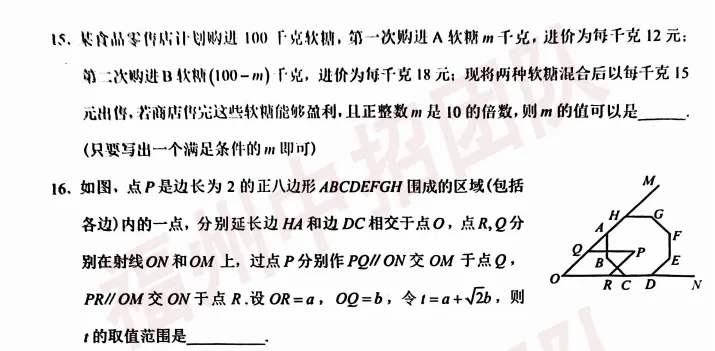 15. 某食品零售店计划购进 100 千克软糖，第一次购进 A 软糖 m 千克，进价为每千克 12 元；
第二次购进 B 软糖(100－m)千克，进价为每千克 18 元；现将两种软糖混合后以每千克 15
元出售，若商店售完这些软糖能够盈利，且正整数 m 是 10 的倍数，则 m 的值可以是______.
(只要写出一个满足条件的 m 即可)
16. 如图，点 P 是边长为 2 的正八边形 ABCDEFGH 围成的区域(包括
各边)内的一点，分别延长边 HA 和边 DC 相交于点 O，点 R，Q 分
别在射线 ON 和 OM 上，过点 P 分别作 PQ∥ON 交 OM 于点 Q，
PR∥OM 交 ON 于点 R.设 OR＝a，OQ＝b，令 t＝a＋√2b，则
t 的取值范围是________.
M
H G
A F
Q P
B E
O R C D N
福州中招团队